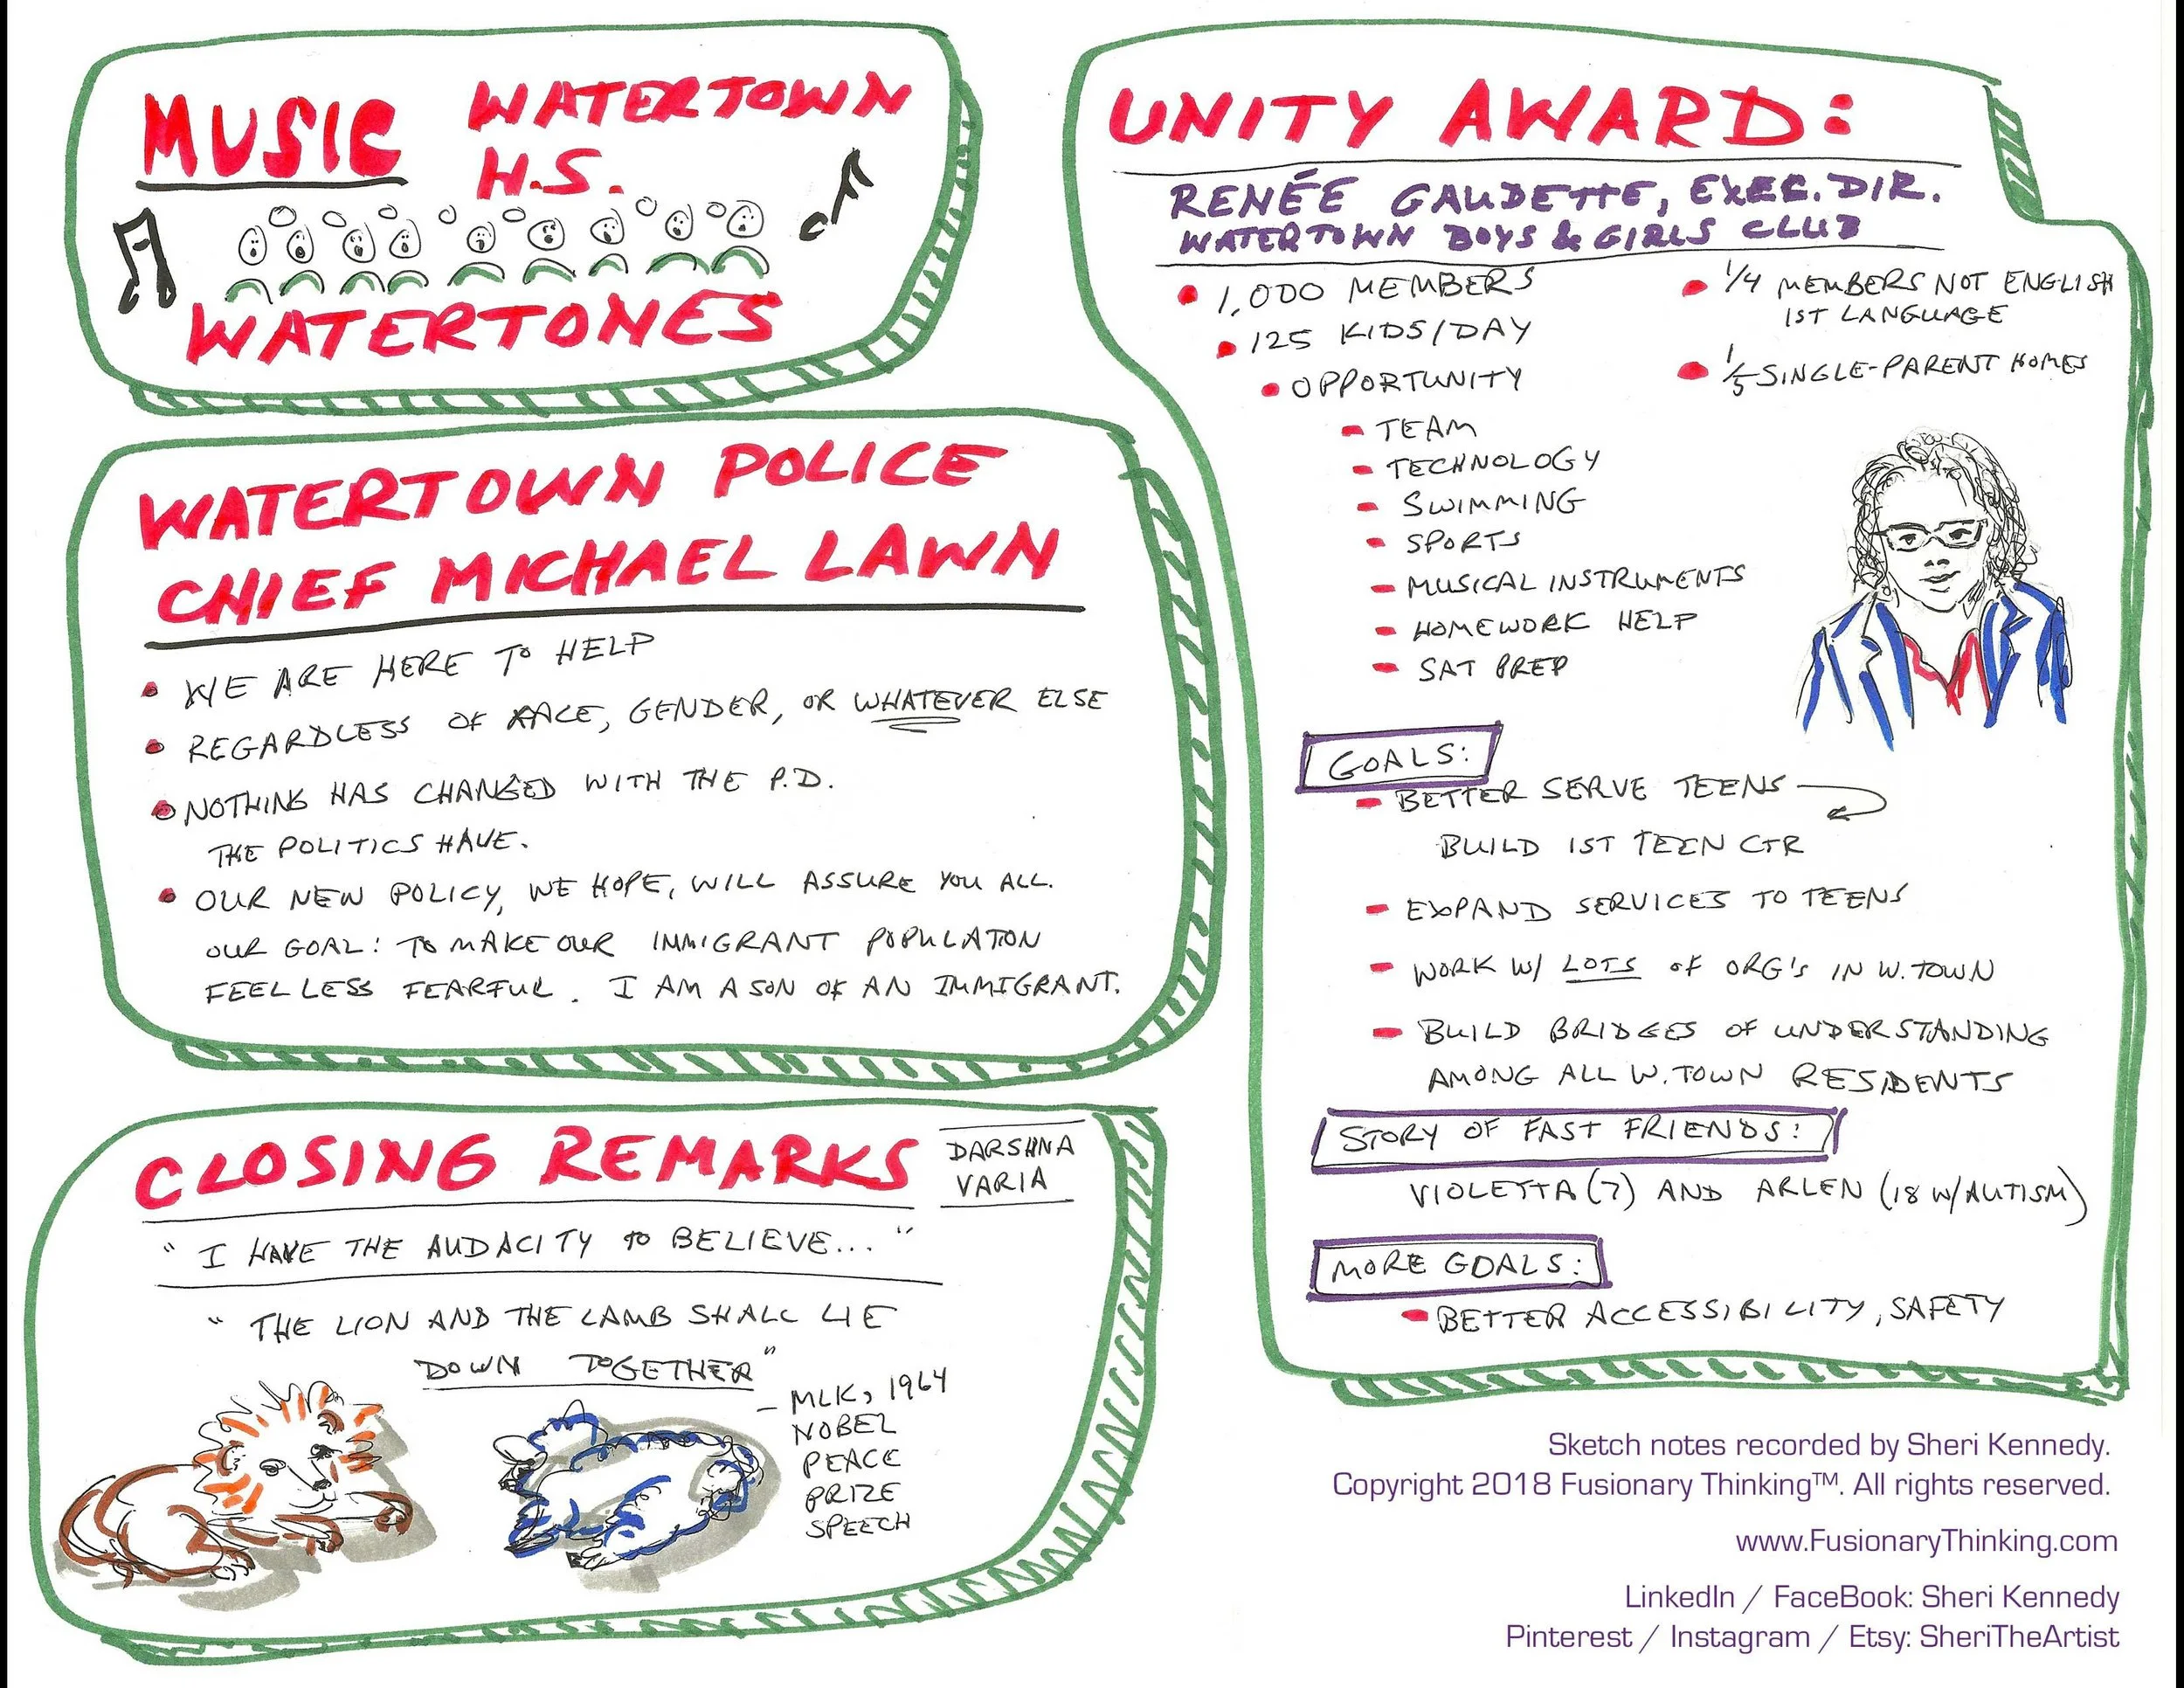 MUSIC WATERTOWN
H.S.
WATERTONES
WATERTOWN POLICE
CHIEF MICHAEL LAWN
• WE ARE HERE TO HELP
• REGARDLESS OF RACE, GENDER, OR WHATEVER ELSE
• NOTHING HAS CHANGED WITH THE P.D.
THE POLITICS HAVE.
• OUR NEW POLICY, WE HOPE, WILL ASSURE YOU ALL.
OUR GOAL: TO MAKE OUR IMMIGRANT POPULATON
FEEL LESS FEARFUL. I AM A SON OF AN IMMIGRANT.
CLOSING REMARKS
DARSHNA
VARIA
"I HAVE THE AUDACITY TO BELIEVE..."
"THE LION AND THE LAMB SHALL LIE
DOWN TOGETHER"
– MLK, 1964
NOBEL
PEACE
PRIZE
SPEECH
UNITY AWARD:
RENÉE GAUDETTE, EXEC. DIR.
WATERTOWN BOYS & GIRLS CLUB
• 1,000 MEMBERS
• 125 KIDS/DAY
• OPPORTUNITY
- TEAM
- TECHNOLOGY
- SWIMMING
- SPORTS
- MUSICAL INSTRUMENTS
- HOMEWORK HELP
- SAT PREP
• 1/4 MEMBERS NOT ENGLISH
1ST LANGUAGE
• 1/5 SINGLE-PARENT HOMES
GOALS:
- BETTER SERVE TEENS
BUILD 1ST TEEN CTR
- EXPAND SERVICES TO TEENS
- WORK W/ LOTS OF ORG'S IN W.TOWN
- BUILD BRIDGES OF UNDERSTANDING
AMONG ALL W.TOWN RESIDENTS
STORY OF FAST FRIENDS:
VIOLETTA (7) AND ARLEN (18 W/AUTISM)
MORE GOALS:
- BETTER ACCESSIBILITY, SAFETY
Sketch notes recorded by Sheri Kennedy.
Copyright 2018 Fusionary Thinking™. All rights reserved.
www.FusionaryThinking.com
LinkedIn / FaceBook: Sheri Kennedy
Pinterest / Instagram / Etsy: SheriTheArtist